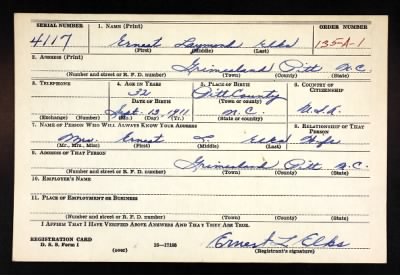 SERIAL NUMBER 1. NAME (Print) ORDER NUMBER
4117 Ernest Laymond Elks 135-A-1
(First) (Middle) (Last)
2. ADDRESS (Print)
Grimesland Pitt N.C.
(Number and street or R. F. D. number) (Town) (County) (State)
3. TELEPHONE 4. AGE IN YEARS 5. PLACE OF BIRTH 6. COUNTRY OF CITIZENSHIP
32 Pitt County
DATE OF BIRTH (Town or county)
Sept. 13 1911 N.C. U.S.A.
(Exchange) (Number) (Mo.) (Day) (Yr.) (State or country)
7. NAME OF PERSON WHO WILL ALWAYS KNOW YOUR ADDRESS 8. RELATIONSHIP OF THAT PERSON
Mrs. Ernest L. Elks Wife
(Mr., Mrs., Miss) (First) (Middle) (Last)
9. ADDRESS OF THAT PERSON
Grimesland Pitt N.C.
(Number and street or R. F. D. number) (Town) (County) (State)
10. EMPLOYER'S NAME
11. PLACE OF EMPLOYMENT OR BUSINESS
(Number and street or R. F. D. number) (Town) (County) (State)
I AFFIRM THAT I HAVE VERIFIED ABOVE ANSWERS AND THAT THEY ARE TRUE.
REGISTRATION CARD
D. S. S. Form 1 (over) 16-17105 Ernest L Elks
(Registrant's signature)